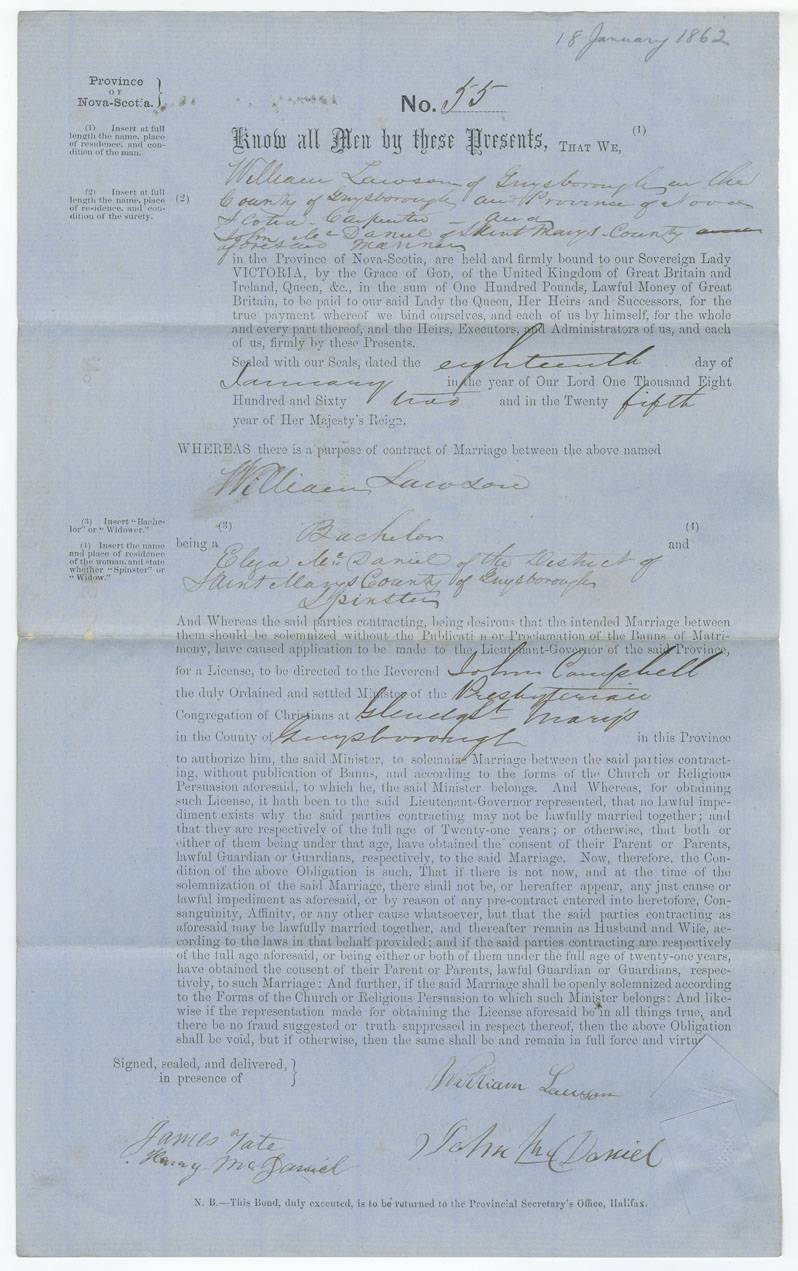 18 January 1862
Province
OF
Nova-Scotia.
No. 55
(1) Insert at full
length the name, place
of residence, and con-
dition of the man.
Know all Men by these Presents, THAT WE, (1)
(2) Insert at full
length the name, place
of residence, and con-
dition of the surety.
(2)
William Lawson of Guysborough in the
County of Guysborough and Province of Nova
Scotia - Carpenter - and
John Mc Daniel of Saint Marys County
aforesaid
in the Province of Nova-Scotia, are held and firmly bound to our Sovereign Lady
VICTORIA, by the Grace of GOD, of the United Kingdom of Great Britain and
Ireland, Queen, &c., in the sum of One Hundred Pounds, Lawful Money of Great
Britain, to be paid to our said Lady the Queen, Her Heirs and Successors, for the
true payment whereof we bind ourselves, and each of us by himself, for the whole
and every part thereof, and the Heirs, Executors, and Administrators of us, and each
of us, firmly by these Presents.
Sealed with our Seals, dated the eighteenth day of
January in the year of Our Lord One Thousand Eight
Hundred and Sixty two and in the Twenty fifth
year of Her Majesty's Reign.
WHEREAS there is a purpose of contract of Marriage between the above named
William Lawson
(3) Insert "Bache-
lor" or "Widower."
(4) Insert the name
and place of residence
of the woman, and state
whether "Spinster" or
"Widow."
(3) (4)
being a Bachelor and
Eliza Mc Daniel of the District of
Saint Marys County of Guysborough
Spinster
And Whereas the said parties contracting, being desirous that the intended Marriage between
them should be solemnized without the Publicati n or Proclamation of the Banns of Matri-
mony, have caused application to be made to the Lieutenant-Governor of the said Province,
for a License, to be directed to the Reverend John Campbell
the duly Ordained and settled Minister of the Presbyterian
Congregation of Christians at St Mary's
in the County of Guysborough in this Province
to authorize him, the said Minister, to solemnize Marriage between the said parties contract-
ing, without publication of Banns, and according to the forms of the Church or Religious
Persuasion aforesaid, to which he, the said Minister belongs. And Whereas, for obtaining
such License, it hath been to the said Lieutenant-Governor represented, that no lawful impe-
diment exists why the said parties contracting may not be lawfully married together; and
that they are respectively of the full age of Twenty-one years; or otherwise, that both or
either of them being under that age, have obtained the consent of their Parent or Parents,
lawful Guardian or Guardians, respectively, to the said Marriage. Now, therefore, the Con-
dition of the above Obligation is such, That if there is not now, and at the time of the
solemnization of the said Marriage, there shall not be, or hereafter appear, any just cause or
lawful impediment as aforesaid, or by reason of any pre-contract entered into heretofore, Con-
sanguinity, Affinity, or any other cause whatsoever, but that the said parties contracting as
aforesaid may be lawfully married together, and thereafter remain as Husband and Wife, ac-
cording to the laws in that behalf provided; and if the said parties contracting are respectively
of the full age aforesaid, or being either or both of them under the full age of twenty-one years,
have obtained the consent of their Parent or Parents, lawful Guardian or Guardians, respec-
tively, to such Marriage: And further, if the said Marriage shall be openly solemnized according
to the Forms of the Church or Religious Persuasion to which such Minister belongs: And like-
wise if the representation made for obtaining the License aforesaid be in all things true, and
there be no fraud suggested or truth suppressed in respect thereof, then the above Obligation
shall be void, but if otherwise, then the same shall be and remain in full force and virtu
Signed, sealed, and delivered,
in presence of
William Lawson
James Tate
Henry McDaniel
John Mc Daniel
N. B.—This Bond, duly executed, is to be returned to the Provincial Secretary's Office, Halifax.